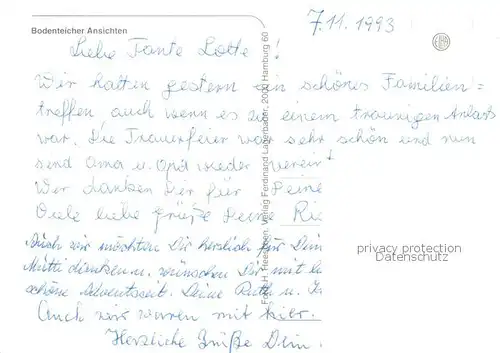 7.11.1993
Bodenteicher Ansichten
Liebe Tante Lotte!
Wir hatten gestern ein schönes Familien=
treffen, auch wenn es zu einem traurigen Anlaß
war. Die Trauerfeier war sehr schön und nun
sind Oma u. Opa wieder vereint
Wir danken Dir für Deine
Viele liebe Grüße Deine
Auch wir möchten Dir herzlich für
Mutti danken u. wünschen Dir mit
schöne Adventszeit. Deine Ruth u.
Auch wir waren mit hier.
Herzliche Grüße Dein
Verlag Ferdinand Lagerbauer, 2000 Hamburg 60
privacy protection
Datenschutz